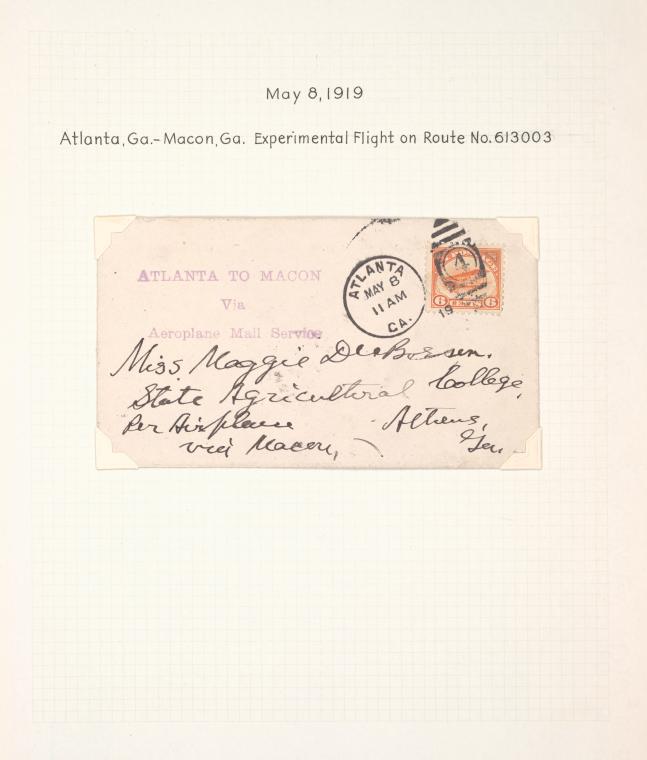 May 8, 1919
Atlanta, Ga. – Macon, Ga. Experimental Flight on Route No. 613003
ATLANTA TO MACON
Via
Aeroplane Mail Service
ATLANTA
MAY 8
11 AM
GA.
19
4
6 6
Miss Maggie
State Agricultural College,
Per Airplane Athens,
via Macon, Ga.